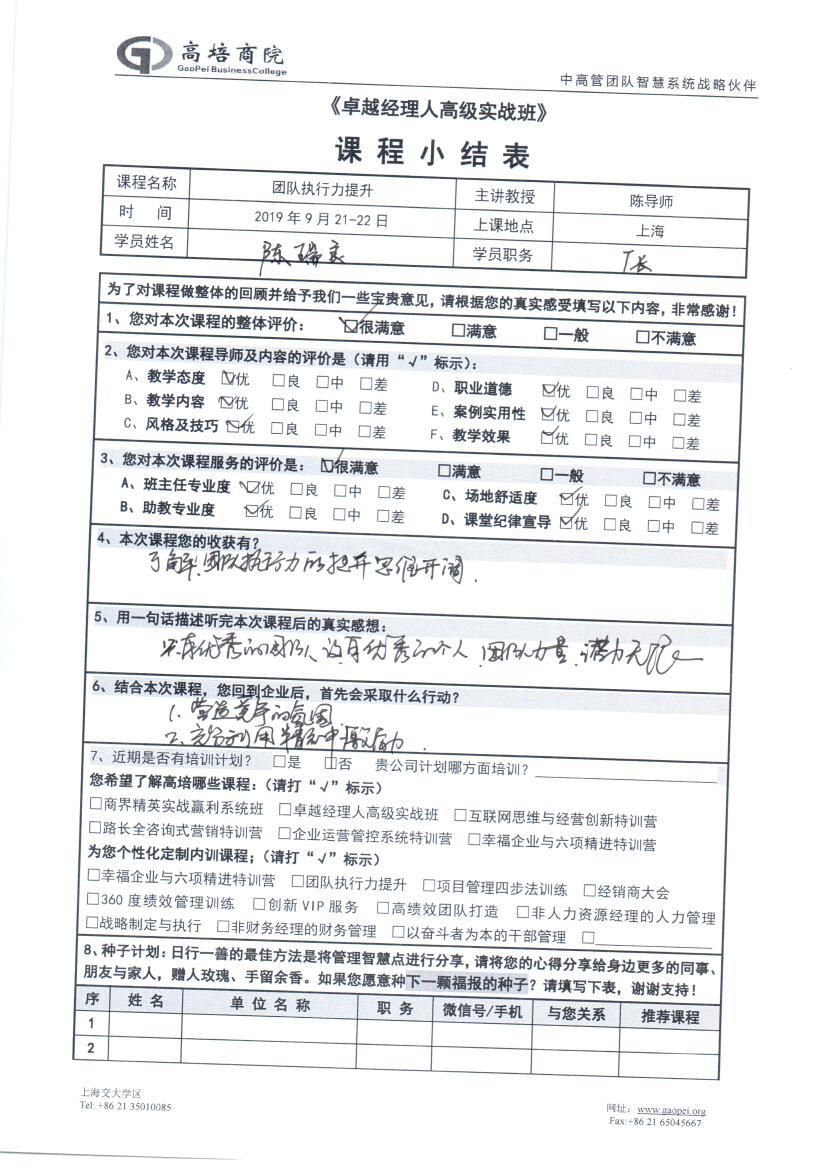 高培商院
GaoPei BusinessCollege
中高管团队智慧系统战略伙伴
《卓越经理人高级实战班》
课程小结表
课程名称 团队执行力提升 主讲教授 陈导师
时 间 2019年9月21-22日 上课地点 上海
学员姓名 陈瑞良 学员职务 厂长
为了对课程做整体的回顾并给予我们一些宝贵意见，请根据您的真实感受填写以下内容，非常感谢！
1、您对本次课程的整体评价： ☑很满意 □满意 □一般 □不满意
2、您对本次课程导师及内容的评价是（请用“√”标示）：
A、教学态度 ☑优 □良 □中 □差 D、职业道德 ☑优 □良 □中 □差
B、教学内容 ☑优 □良 □中 □差 E、案例实用性 ☑优 □良 □中 □差
C、风格及技巧 ☑优 □良 □中 □差 F、教学效果 ☑优 □良 □中 □差
3、您对本次课程服务的评价是： ☑很满意 □满意 □一般 □不满意
A、班主任专业度 ☑优 □良 □中 □差 C、场地舒适度 ☑优 □良 □中 □差
B、助教专业度 ☑优 □良 □中 □差 D、课堂纪律宣导 ☑优 □良 □中 □差
4、本次课程您的收获有？
了解团队执行力的提升 思维开阔.
5、用一句话描述听完本次课程后的真实感想：
只有优秀的团队，没有优秀的个人，团队力量，潜力无限
6、结合本次课程，您回到企业后，首先会采取什么行动？
1、营造竞争的氛围.
2、充分利用精神激励.
7、近期是否有培训计划？ □是 □否 贵公司计划哪方面培训？
您希望了解高培哪些课程：（请打“√”标示）
□商界精英实战赢利系统班 □卓越经理人高级实战班 □互联网思维与经营创新特训营
□路长全咨询式营销特训营 □企业运营管控系统特训营 □幸福企业与六项精进特训营
为您个性化定制内训课程；（请打“√”标示）
□幸福企业与六项精进特训营 □团队执行力提升 □项目管理四步法训练 □经销商大会
□360度绩效管理训练 □创新VIP服务 □高绩效团队打造 □非人力资源经理的人力管理
□战略制定与执行 □非财务经理的财务管理 □以奋斗者为本的干部管理 □
8、种子计划：日行一善的最佳方法是将管理智慧点进行分享，请将您的心得分享给身边更多的同事、
朋友与家人，赠人玫瑰、手留余香。如果您愿意种下一颗福报的种子？请填写下表，谢谢支持！
序 姓 名 单 位 名 称 职 务 微信号/手机 与您关系 推荐课程
1
2
上海交大学区
Tel: +86 21 35010085
网址：www.gaopei.org
Fax:+86 21 65045667